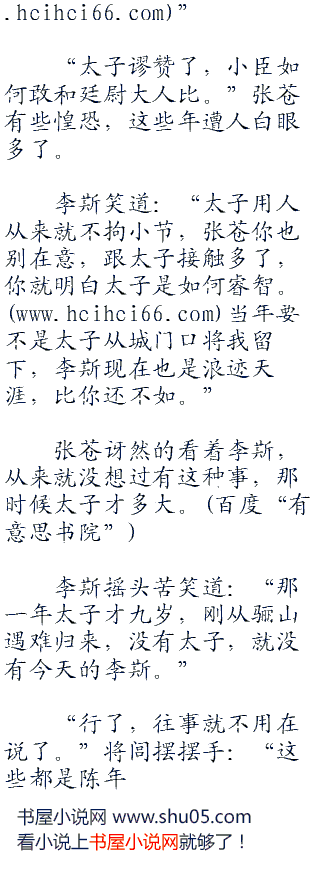 .hcihci66.com)”
“太子谬赞了，小臣如
何敢和廷尉大人比。”张苍
有些惶恐，这些年遭人白眼
多了。
李斯笑道：“太子用人
从来就不拘小节，张苍你也
别在意，跟太子接触多了，
你就明白太子是如何睿智。
(www.hcihci66.com)当年要
不是太子从城门口将我留
下，李斯现在也是浪迹天
涯，比你还不如。”
张苍讶然的看着李斯，
从来就没想过有这种事，那
时候太子才多大。(百度“有
意思书院”)
李斯摇头苦笑道：“那
一年太子才九岁，刚从骊山
遇难归来，没有太子，就没
有今天的李斯。”
“行了，往事就不用在
说了。”将闾摆摆手：“这
些都是陈年
书屋小说网 www.shu05.com
看小说上书屋小说网就够了！